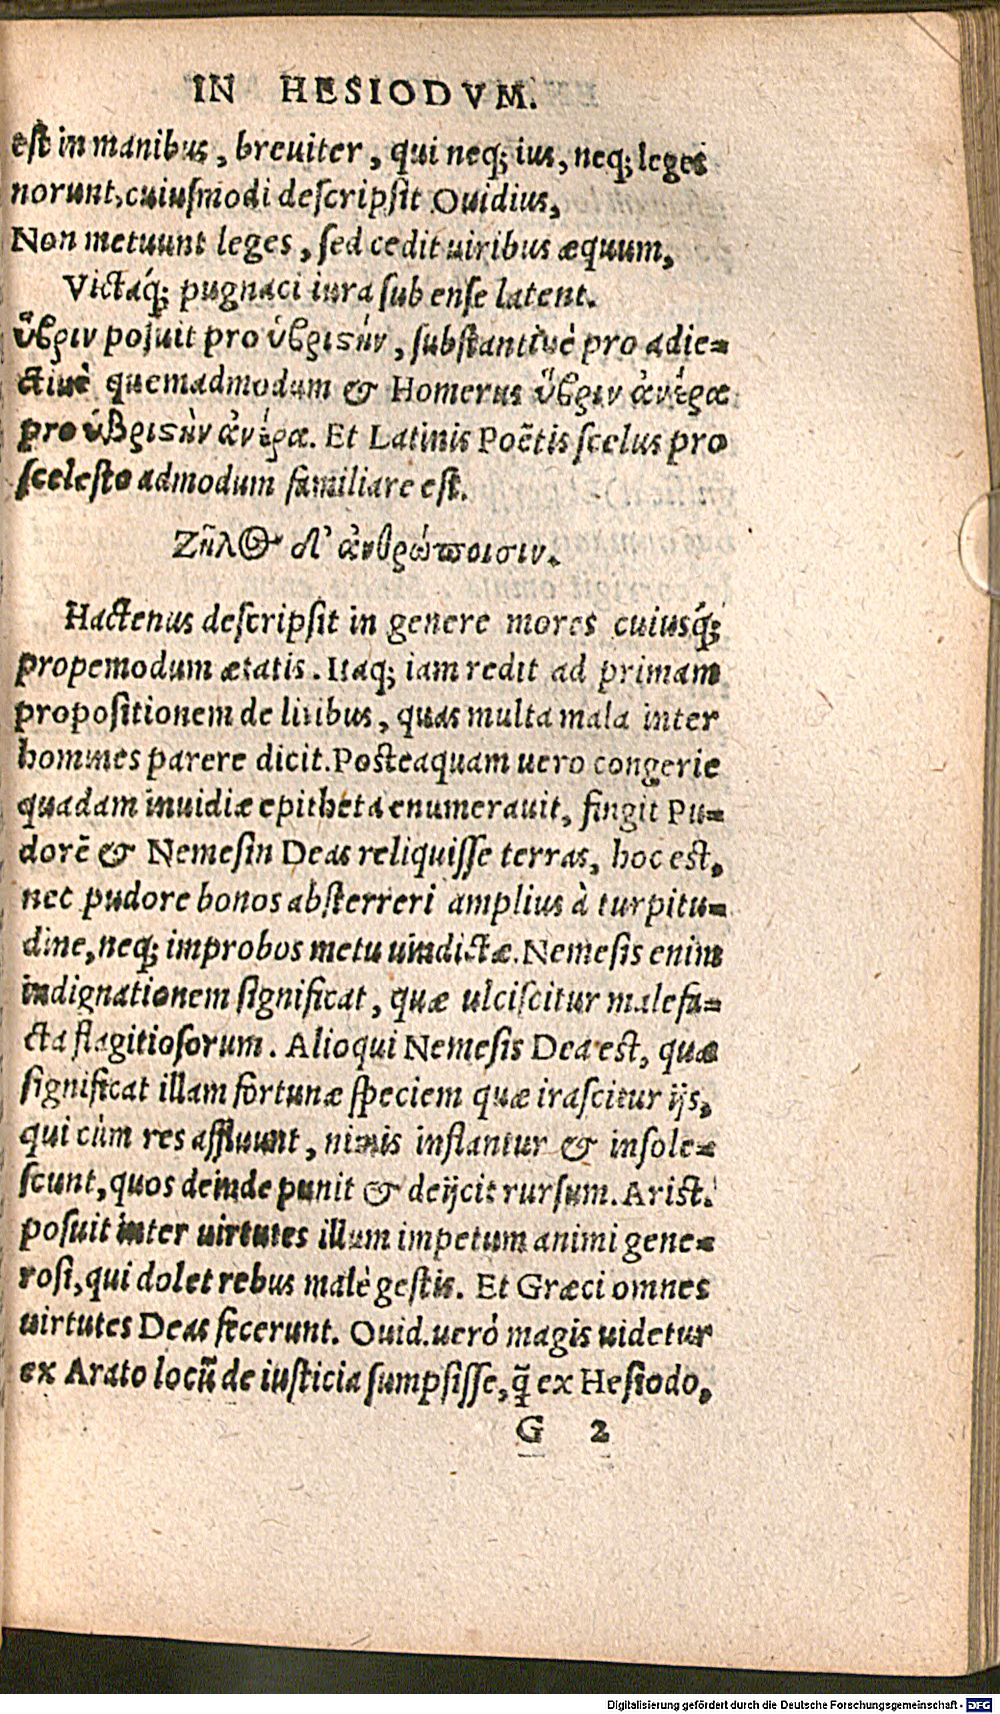 IN HESIODVM.
est in manibus, breuiter, qui neq; ius, neq; leges
norunt, cuiusmodi descripsit Ouidius,
Non metuunt leges, sed cedit uiribus æquum,
Victaq́; pugnaci iura sub ense latent.
ὕβριν posuit pro ὑβριστὴν, substantiuè pro adie=
ctiuè quemadmodum & Homerus ὕβριν ἀνέρα
pro ὑβριστὴν ἀνέρα. Et Latinis Poẽtis scelus pro
scelesto admodum familiare est.
Ζῆλος δ' ἀνθρώποισιν.
Hactenus descripsit in genere mores cuiusq́;
propemodum ætatis. Itaq; iam redit ad primam
propositionem de litibus, quas multa mala inter
homines parere dicit. Posteaquam uero congerie
quadam inuidiæ epitheta enumerauit, fingit Pu=
dorẽ & Nemesin Deas reliquisse terras, hoc est,
nec pudore bonos absterreri amplius à turpitu=
dine, neq; improbos metu uindictæ. Nemesis enim
indignationem significat, quæ ulciscitur malefa=
cta flagitiosorum. Alioqui Nemesis Dea est, quæ
significat illam fortunæ speciem quæ irascitur ijs,
qui cùm res affluunt, nimis inflantur & insole=
scunt, quos deinde punit & deijcit rursum. Arist.
posuit inter uirtutes illum impetum animi gene=
rosi, qui dolet rebus malè gestis. Et Græci omnes
uirtutes Deas fecerunt. Ouid. uerò magis uidetur
ex Arato locũ de iusticia sumpsisse, q̃ ex Hesiodo,
G 2
Digitalisierung gefördert durch die Deutsche Forschungsgemeinschaft - DFG